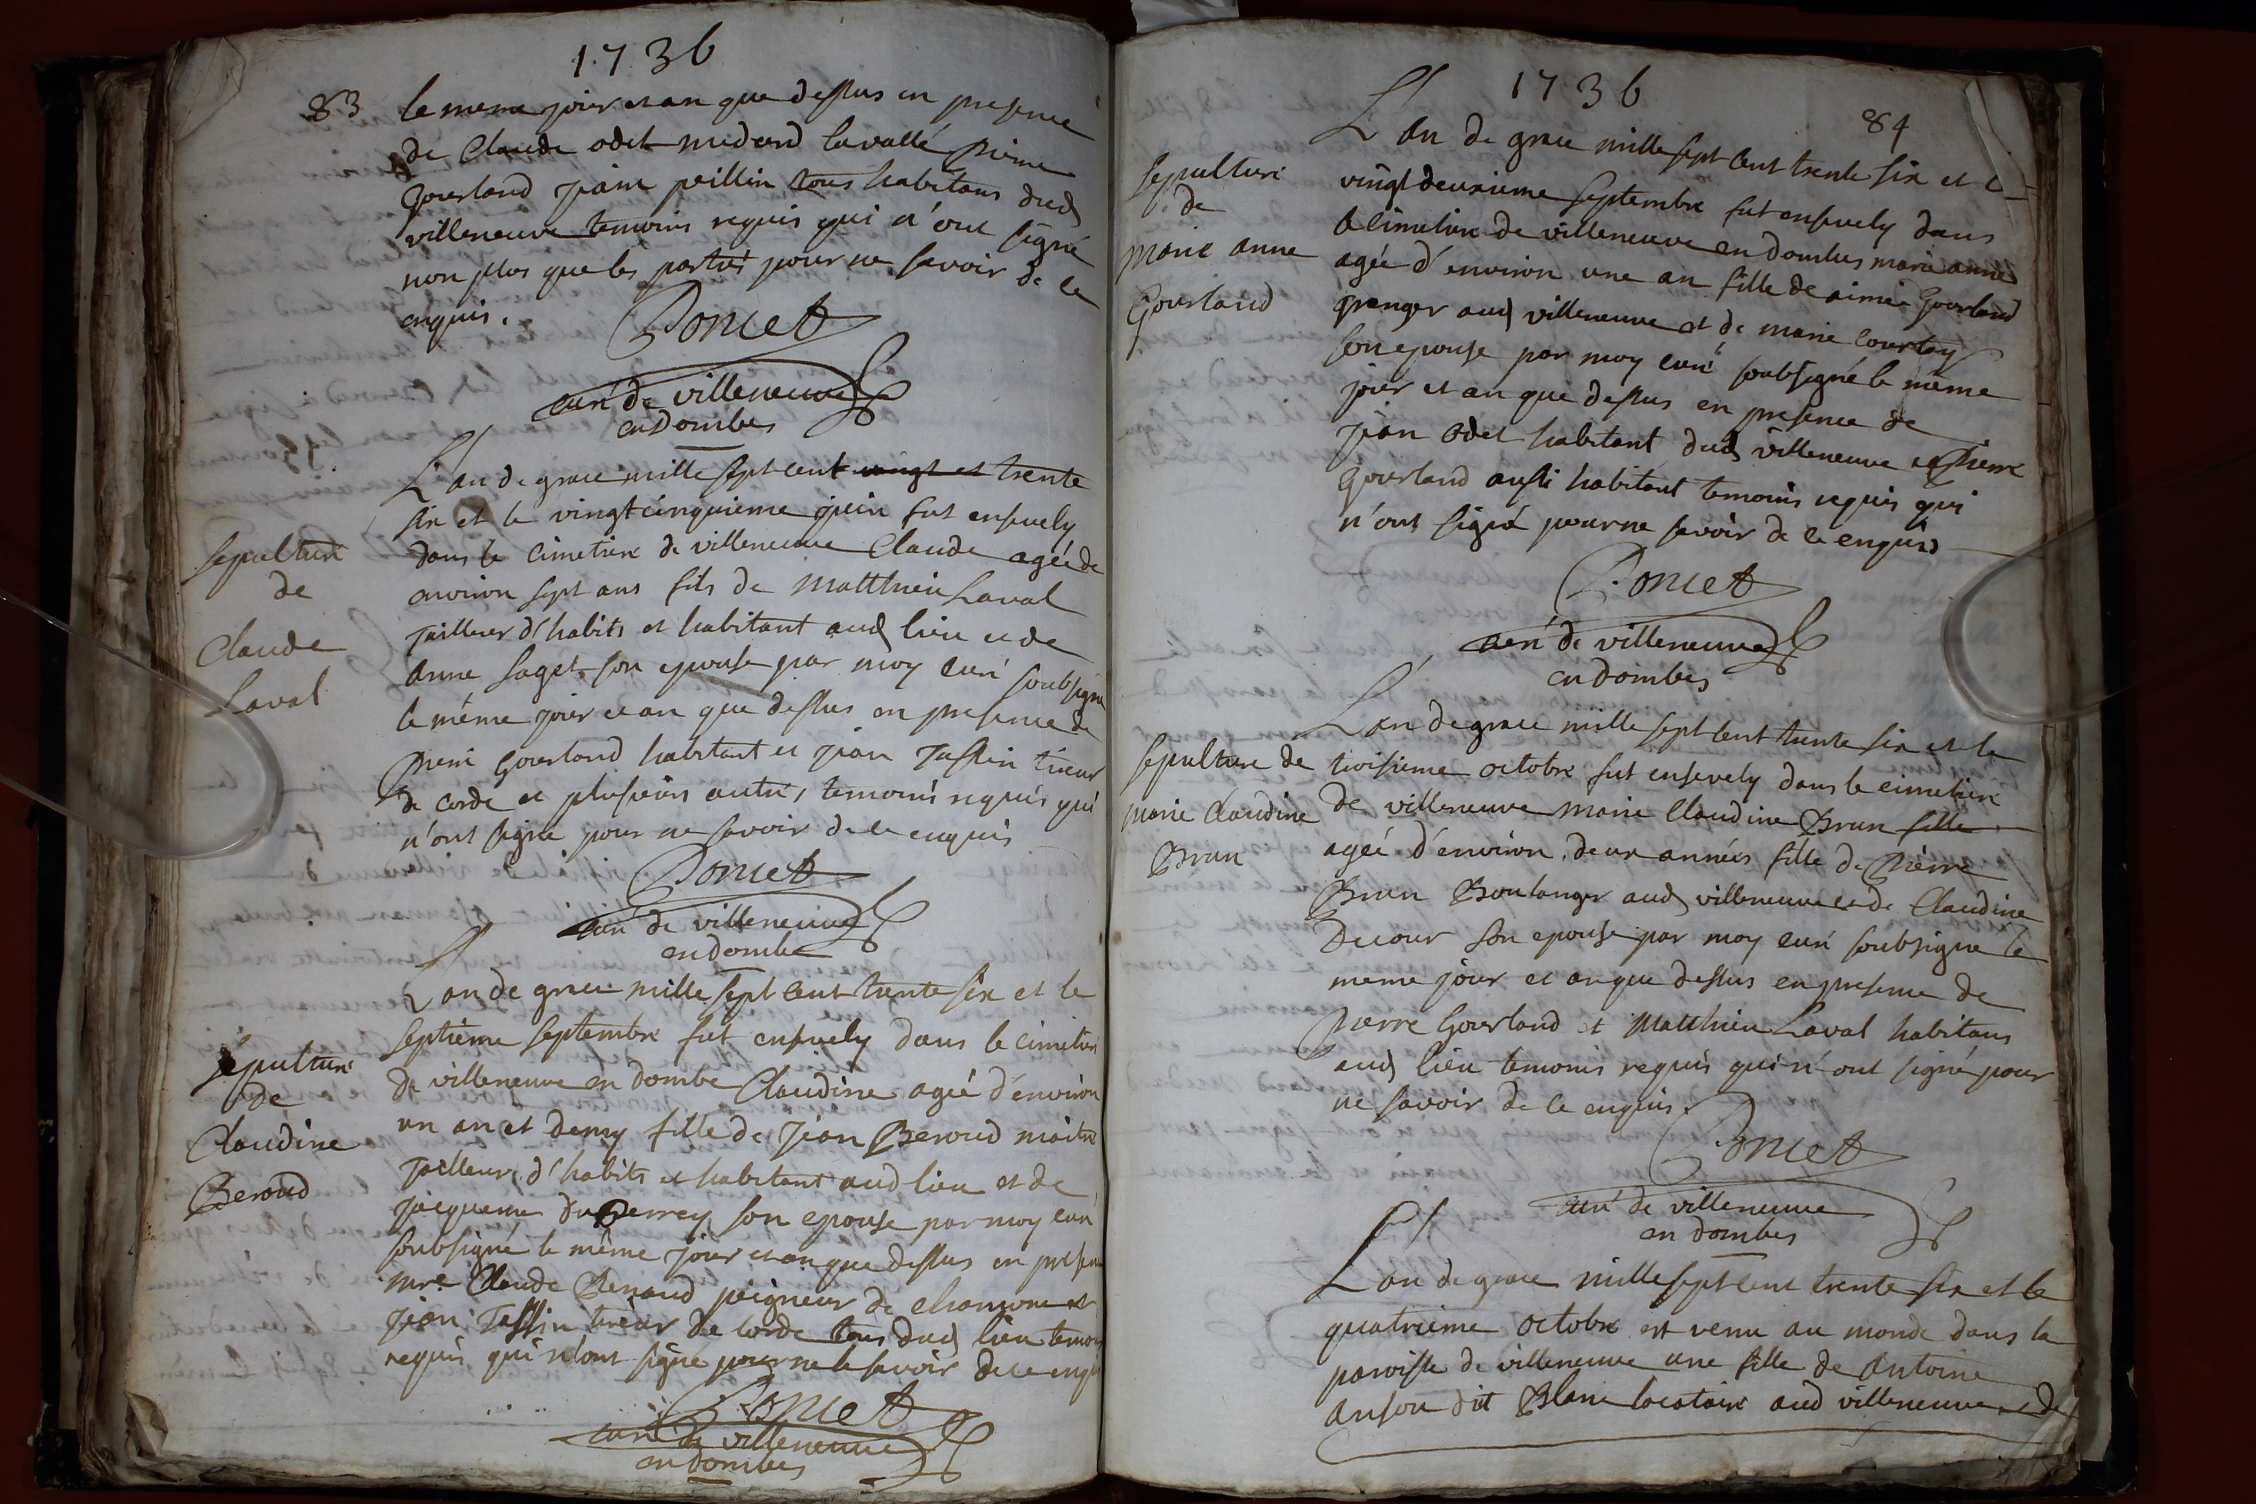 1736
83
le meme jour et an que dessus en presence
de Claude odet medard lavallé Pierre
Gourland jean peillin tous habitans dud
villeneuve temoins requis qui n'ont signé
non plus que les parties pour ne savoir de ce
enquis.
Poncet
curé de villeneuve
en Dombes
L'an de grace mille sept cent vingt et trente
six et le vingtcinquieme juin fut ensevely
dans le cimetiere de villeneuve Claude agée de
environ sept ans fils de Matthieu Laval
Tailleur d'habits et habitant aud lieu et de
Anne Saget son epouse par moy curé soubsigné
le même jour et an que dessus en presence de
Pierre Gourland habitant et jean Tassin tireur
de corde et plusieurs autres temoins requis qui
n'ont signé pour ne savoir de ce enquis
Poncet
curé de villeneuve
en dombe
sepulture
de
Claude
Laval
L'an de grace mille sept cent trente six et le
septieme septembre fut ensevely dans le cimetiere
de villeneuve en dombe Claudine agée d'environ
un an et demy fille de jean Beroud maitre
Tailleur d'habits et habitant aud lieu et de
jacqueme du Perrey son epouse par moy curé
soubsigné le même jour et an que dessus en presence
mre Claude Renaud peigneur de chanvre et
jean Tassin tireur de corde tous dud lieu temoins
requis qui n'ont signé pour ne le savoir de ce enquis
Poncet
curé de villeneuve
en dombes
sepulture
de
Claudine
Beroud
1736
84
L'an de grace mille sept cent trente six et le
vingtdeuxieme septembre fut ensevely dans
le cimetiere de villeneuve en dombes marie anne
agée d'environ une an fille de aimé Gourland
granger aud villeneuve et de marie Courtay
son epouse par moy curé soubsigné le même
jour et an que dessus en presence de
jean Odet habitant dud villeneuve et Pierre
Gourland aussi habitant temoins requis qui
n'ont signé pour ne savoir de ce enquis
Poncet
curé de villeneuve
en dombes
sepulture
de
marie anne
Gourland
L'an de grace mille sept cent trente six et le
troisieme octobre fut ensevely dans le cimetiere
de villeneuve marie Claudine Brun fille
agée d'environ deux années fille de Pierre
Brun Boulanger aud villeneuve et de Claudine
Decour son epouse par moy curé soubsigné le
meme jour et an que dessus en presence de
Pierre Gourland et Matthieu Laval habitans
aud lieu temoins requis qui n'ont signé pour
ne savoir de ce enquis.
Poncet
curé de villeneuve
en dombes
sepulture de
marie Claudine
Brun
L'an de grace mille sept cent trente six et le
quatrieme octobre est venu au monde dans la
paroisse de villeneuve une fille de Antoine
Anson dit Blanc locataire aud villeneuve et de